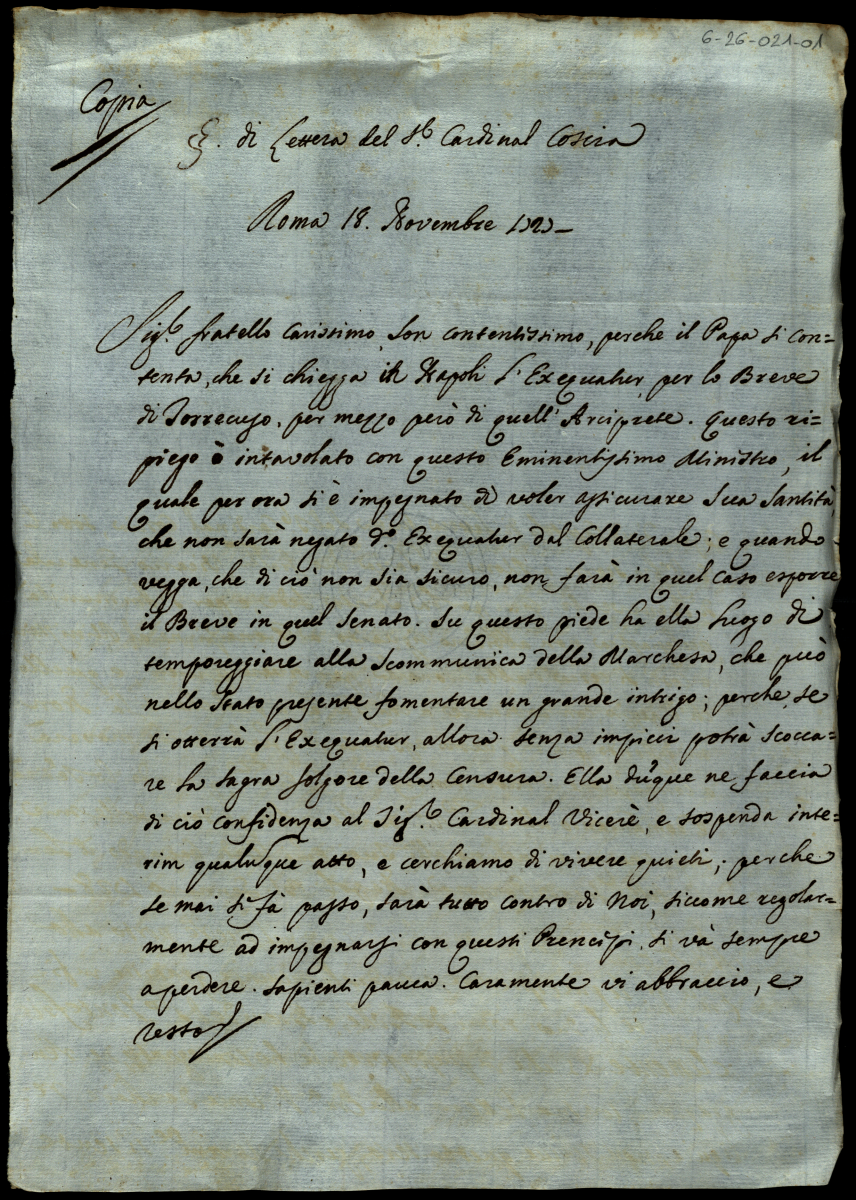 6-26-021-01
Copia
§. di Lettera del S.r Cardinal Coscia
Roma 18. Novembre 1727
Sig.r fratello carissimo, son contentissimo, perche il Papa si con=
tenta, che si chiegga in Napoli l'Exequatur, per lo Breve
di Torrecuso, per mezzo però di quell'Arciprete. Questo ri=
piego è intavolato con questo Eminentissimo Ministro, il
quale per ora si è impegnato di voler assicurare Sua Santità
che non sarà negato d.o Exequatur dal Collaterale; e quando
vegga, che di ciò non sia sicuro, non farà in quel caso esporre
il Breve in quel Senato. Su questo piede ha ella luogo di
temporeggiare alla scommunica della Marchesa, che può
nello stato presente fomentare un grande intrigo; perche, se
si otterrà l'Exequatur, allora senza impicci potrà scocca=
re la sagra folgore della Censura. Ella dunque ne faccia
di ciò confidenza al Sig.r Cardinal Vicerè, e sospenda inte=
rim qualunque atto, e cerchiamo di vivere quieti; perche
se mai si fà passo, sarà tutto contro di Noi, siccome regolar=
mente ad impegnarsi con questi Prencipi, si và sempre
a perdere. Sapienti pauca. Caramente vi abbraccio, e
resto